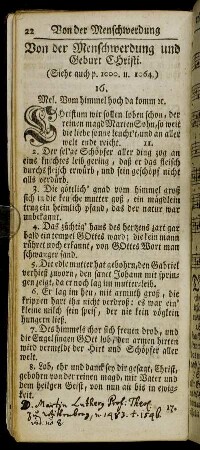 22 Von der Menschwerdung
Von der Menschwerdung und
Geburt CHristi.
(Siehe auch p. 1000. u. 1064.)
16.
Mel. Vom himmel hoch da komm ꝛc.
CHristum wir sollen loben schon, der
reinen magd Marien Sohn, so weit
die liebe sonne leucht't, und an aller
welt ende reicht. 11.
2. Der sel'ge Schöpfer aller ding zog an
eins knechtes leib gering, daß er das fleisch
durchs fleisch erwürb, und sein geschöpf nicht
alls verdürb.
3. Die göttlich' gnad vom himmel groß
sich in die keusche mutter goß, ein mägdlein
trug ein heimlich pfand, das der natur war
unbekannt.
4. Das züchtig' haus des hertzens zart gar
bald ein tempel GOttes ward: die kein mann
rühret noch erkannt, von GOttes Wort man
schwanger fand.
5. Die edle mutter hat gebohren, den Gabriel
verhieß zuvorn, den sanct Johann mit sprin-
gen zeigt, da er noch lag in mutterleib.
6. Er lag im heu, mit armuth groß, die
krippen hart ihn nicht verdroß: es war ein
kleine milch sein speis', der nie kein vöglein
hungern ließ.
7. Des himmels chor sich freuen drob, und
die Engel singen GOtt lob, den armen hirten
wird vermeldt der Hirt und Schöpfer aller
welt.
8. Lob, ehr und danck sey dir gesagt, Christ,
gebohren von der reinen magd, mit Vater und
dem heilgen Geist, von nun an bis in ewig-
keit.
D. Martin Luther, Prof. Theol.
zu Wittenberg, n. 1483. † 1546.
17.